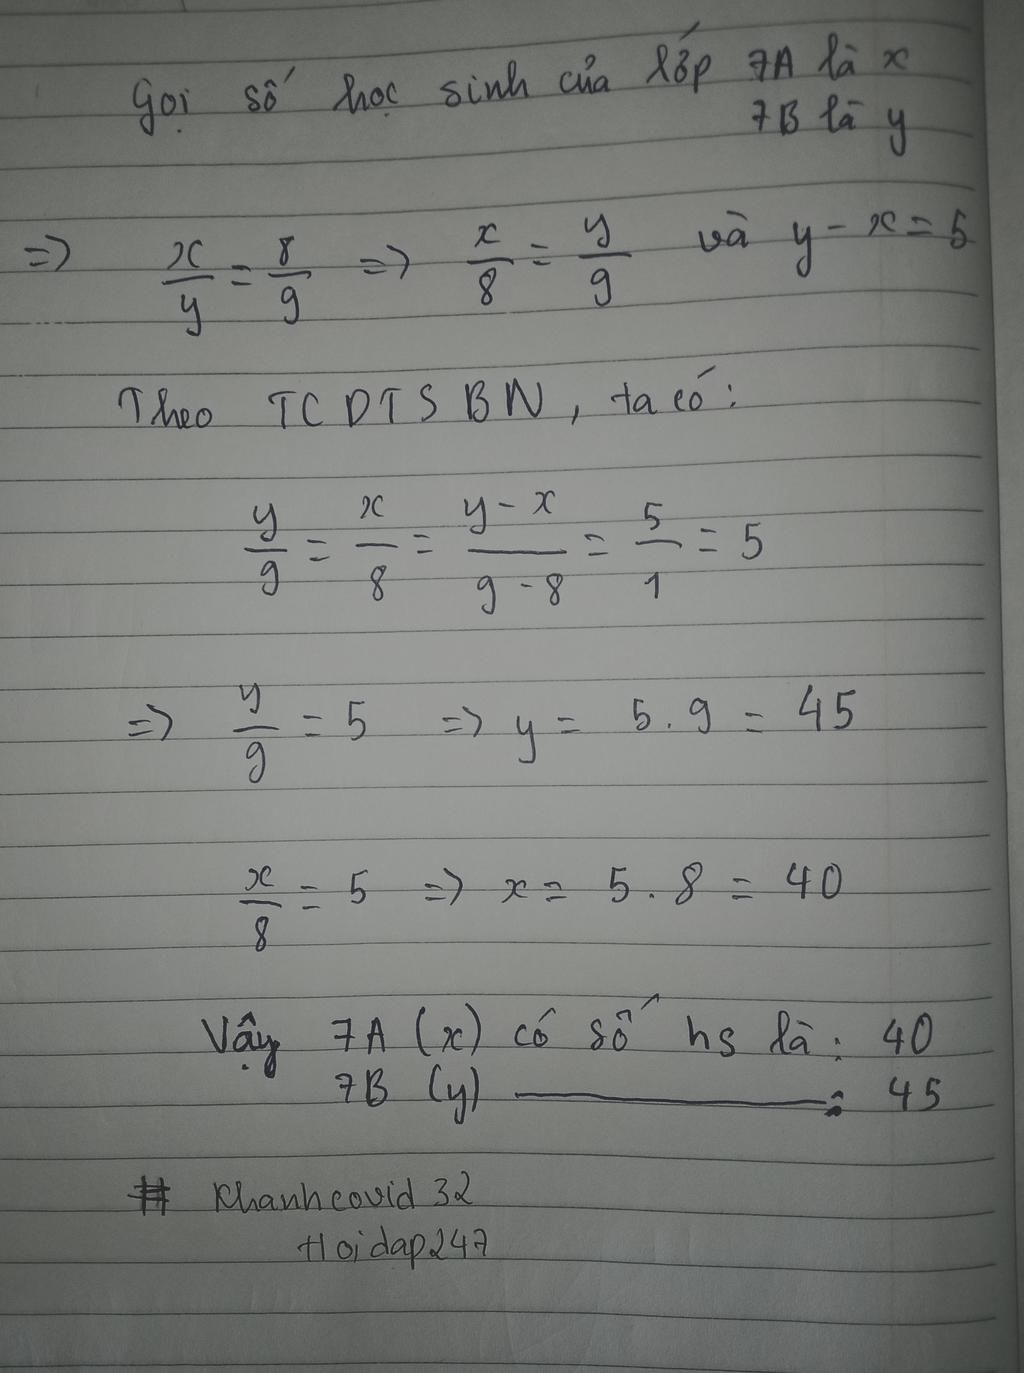 Gọi số học sinh của lớp 7A là x
7B là y
=> x/y = 8/9 => x/8 = y/9 và y - x = 5
Theo TCDTSBN, ta có:
y/9 = x/8 = y - x/9 - 8 = 5/1 = 5
=> y/9 = 5 => y = 5.9 = 45
x/8 = 5 => x = 5.8 = 40
Vậy 7A (x) có số hs là: 40
7B (y) ———: 45
# Khanhcovid 32
Hoidap247